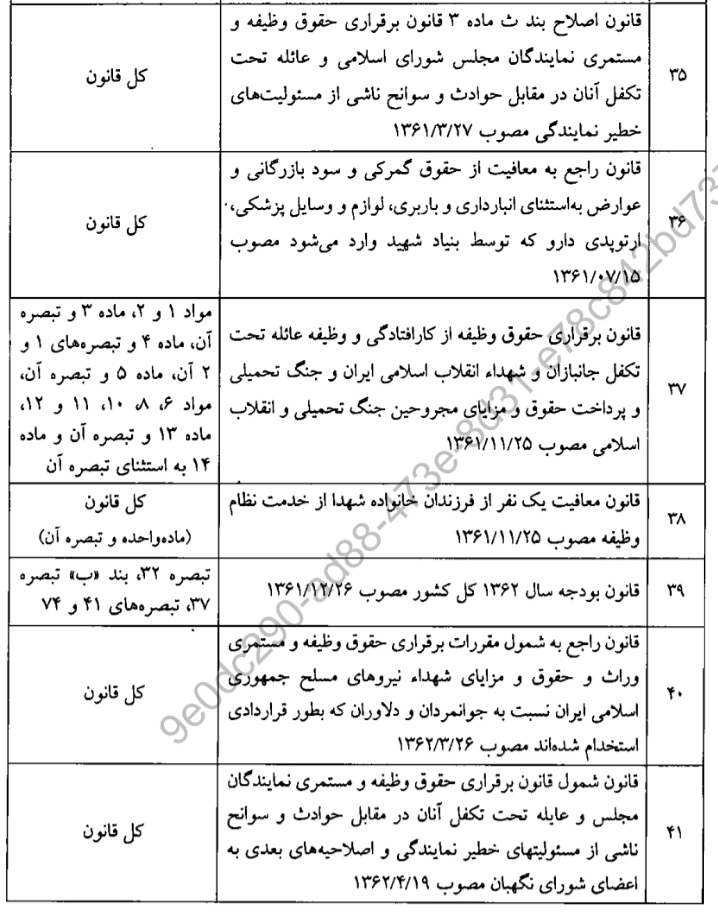 ۳۵
قانون اصلاح بند ث ماده ۳ قانون برقراری حقوق وظیفه و
مستمری نمایندگان مجلس شورای اسلامی و عائله تحت
تکفل آنان در مقابل حوادث و سوانح ناشی از مسئولیت‌های
خطیر نمایندگی مصوب ۱۳۶۱/۳/۲۷
کل قانون
۳۶
قانون راجع به معافیت از حقوق گمرکی و سود بازرگانی و
عوارض به‌استثنای انبارداری و باربری، لوازم و وسایل پزشکی،
ارتوپدی دارو که توسط بنیاد شهید وارد می‌شود مصوب
۱۳۶۱/۰۷/۱۵
کل قانون
۳۷
قانون برقراری حقوق وظیفه از کارافتادگی و وظیفه عائله تحت
تکفل جانبازان و شهداء انقلاب اسلامی ایران و جنگ تحمیلی
و پرداخت حقوق و مزایای مجروحین جنگ تحمیلی و انقلاب
اسلامی مصوب ۱۳۶۱/۱۱/۲۵
مواد ۱ و ۲، ماده ۳ و تبصره
آن، ماده ۴ و تبصره‌های ۱ و
۲ آن، ماده ۵ و تبصره آن،
مواد ۶، ۸، ۱۰، ۱۱ و ۱۲،
ماده ۱۳ و تبصره آن و ماده
۱۴ به استثنای تبصره آن
۳۸
قانون معافیت یک نفر از فرزندان خانواده شهدا از خدمت نظام
وظیفه مصوب ۱۳۶۱/۱۱/۲۵
کل قانون
(ماده‌واحده و تبصره آن)
۳۹
قانون بودجه سال ۱۳۶۲ کل کشور مصوب ۱۳۶۱/۱۲/۲۶
تبصره ۳۲، بند «ب» تبصره
۳۷، تبصره‌های ۴۱ و ۷۴
۴۰
قانون راجع به شمول مقررات برقراری حقوق وظیفه و مستمری
وراث و حقوق و مزایای شهداء نیروهای مسلح جمهوری
اسلامی ایران نسبت به جوانمردان و دلاوران که بطور قراردادی
استخدام شده‌اند مصوب ۱۳۶۲/۳/۲۶
کل قانون
۴۱
قانون شمول قانون برقراری حقوق وظیفه و مستمری نمایندگان
مجلس و عایله تحت تکفل آنان در مقابل حوادث و سوانح
ناشی از مسئولیتهای خطیر نمایندگی و اصلاحیه‌های بعدی به
اعضای شورای نگهبان مصوب ۱۳۶۲/۴/۱۹
کل قانون